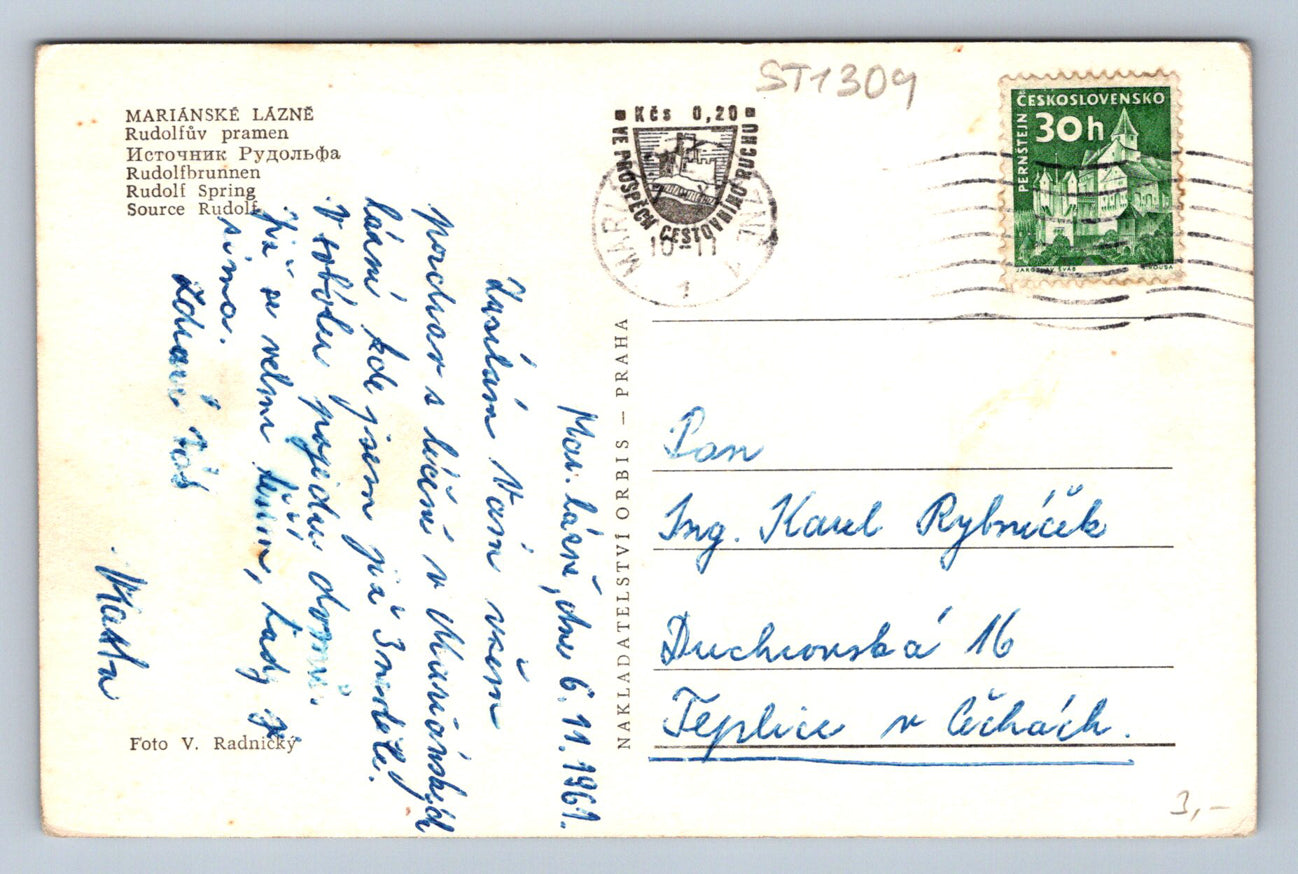 MARIÁNSKÉ LÁZNĚ
Rudolfův pramen
Источник Рудольфа
Rudolfbrunnen
Rudolf Spring
Source Rudolf
ST1309
Kčs 0,20
VE PROSPĚCH CESTOVNÍHO RUCHU
10-11
1
ČESKOSLOVENSKO
30h
PERNŠTEJN
JAROSLAV ŠVÁB
Mar. lázně, dne 6.11.1961.
Zasílám Vám všem
pozdrav s léčení v Mariánských
lázní kde jsem již 3 neděle.
V sobotu pojedu domů.
Již se velmi těším, tady je
zima.
Zdraví Vás
Foto V. Radnický
NAKLADATELSTVÍ ORBIS — PRAHA
Pan
Ing. Karel Rybníček
Duchcovská 16
Teplice v Čechách.
3,-